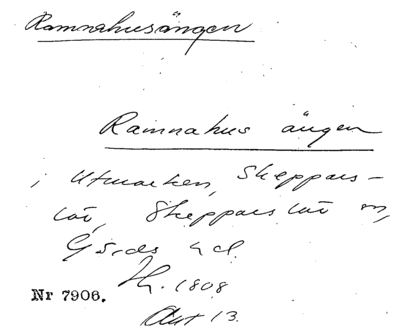 Ramnahusängen
Ramnahus ängen
i Utmarken, Skeppars-
löv, Skepparslöv sn,
Gärds hd.
Nr 7906.
1808
Akt 13.